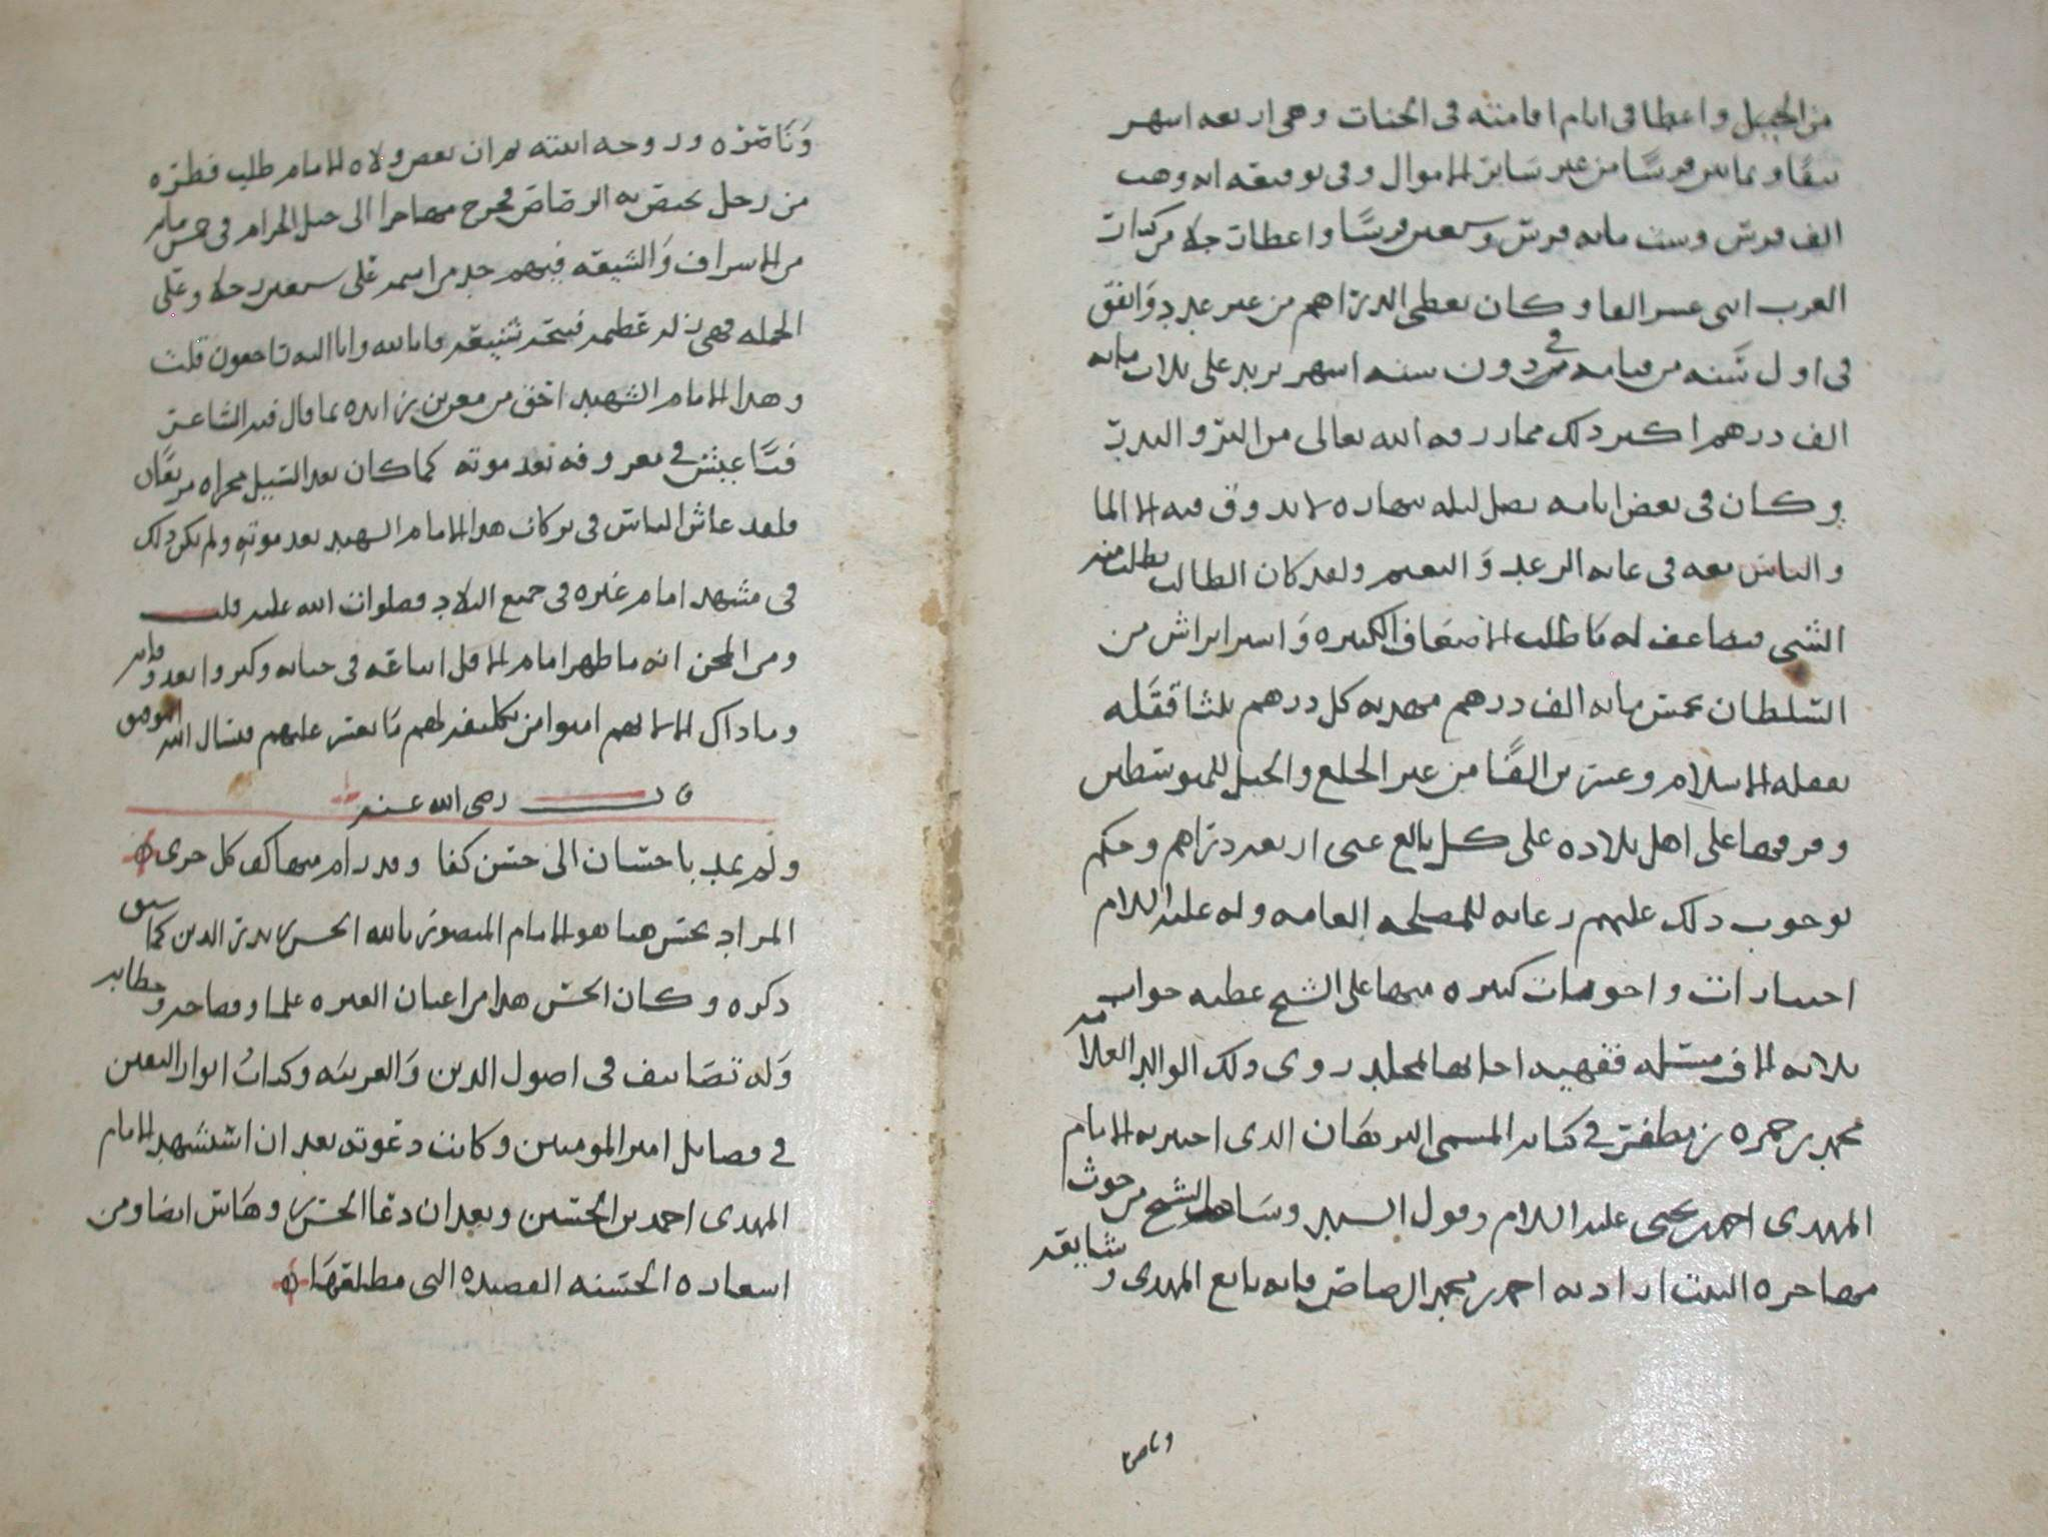 من الجبل واعطا في ايام اقامته في الجنات وهي اربعه اشهر
نيفا وثمانين فرسًا من غير سَاير الاموال وفي توقيعه انه وهب
الف فرس وست مايه فرس وسبعين فرسًا واعطات جلا من كبار
العرب اثنى عشر الفا وكان يعطي الدراهم من غير عدد وَانفق
في اول سَنه من قيامه في دون سته اشهر يزيد على ثلاث مايه
الف درهم اكثر ذلك مما رزقه الله تعالى من النذر والبر
وكان في بعض ايامه يصل ليله بنهاره لا يذوق فيه الا الما
والناس معه في غايه الرغد وَالنعيم ولقد كان الطالب يطلب منه
الشي فيضاعف له مَا طلب الاضعاف الكثيره وَاسر ابراش من
السلطان بخمس مايه الف درهم مهديه كل درهم ثلثا قفله
بقفله الاسلام وعشرين الفًا من غير الخلع والخيل للمتوسطين
وفرقها على اهل بلاده على كل بالغ غني اربعه دراهم وحكم
بوجوب ذلك عليهم رعايه للمصلحه العامه وله عليه السلام
اختيارات واجوبات كثيره منها على الشيخ عطيه جواب
ثلاثه الاف مسئله فقهيه اجابها لمجلد روى ذلك الوالد العلامه
محمد بن حمزه بن مظفر في كتابه المسمى البرهَان الذي اختبر به الامام
المهدي احمد بن يحيى عليه السلام وقول السيد وسَاهل الشيخ من حوث
مصاحره البيت اراد به احمد بن محمد الرصاص فانه بايع المهدي وشايعه
وناصره
وَنَاصَره وزوجه ابنته ثم ان بعض ولاه الامام طلب فطره
من رجل يختص به الرصاص فخرج مهاجرا الى جبل الحرام في خمس مايه
من الاسراف وَالشيعه فيهم جد من اسمه على سبعين رجلا وعلى
الجمله فهي زله عظيمه فسحه شنيعه فانا لله وانا اليه راجعون قلت
وهذا الامام الشهيد احق من معن بن زايده بما قال فيه الشاعر
فتًا عيش في معروفه بعد موته كما كان بعد السيل مجراه مربعًا
فلقد عاش الناس في بركات هذا الامام الشهيد بعد موته ولم يكن ذلك
في مشهد امام غيره في جميع البلاد فصلوات الله عليه قلت
ومن المحن انه ما ظهر امام الا قل اتباعه في حياته وكثروا بعد وفاته
وما ذاك الا لانهم امنوا من تكليفه لهم مَا يعسر عليهم فنسال الله التوفيق
قال رضي الله عنه
ولم يجد باحسان الى حسن كفا وقد رام منها كف كل حرى
المراد بحسن هنا هو الامام المنصور بالله الحسن بن بدر الدين كما سبق
ذكره وكان الحسن هذا من اعيان العتره علما وفصاحه وخطابه
وَله تصَانيف في اصول الدين وَالعربيَه وكتاب انوار اليقين
في فضايل امير المومنين وكانت دعوته بعد ان استشهد الامام
المهدي احمد بن الحسين وبعد ان دعا الحسن وهاس ايضا ومن
اشعاره الحسنه القصيده التي مطلعهَا